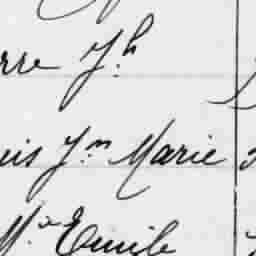 rre Jh
uis Jn Marie
Ma Emile